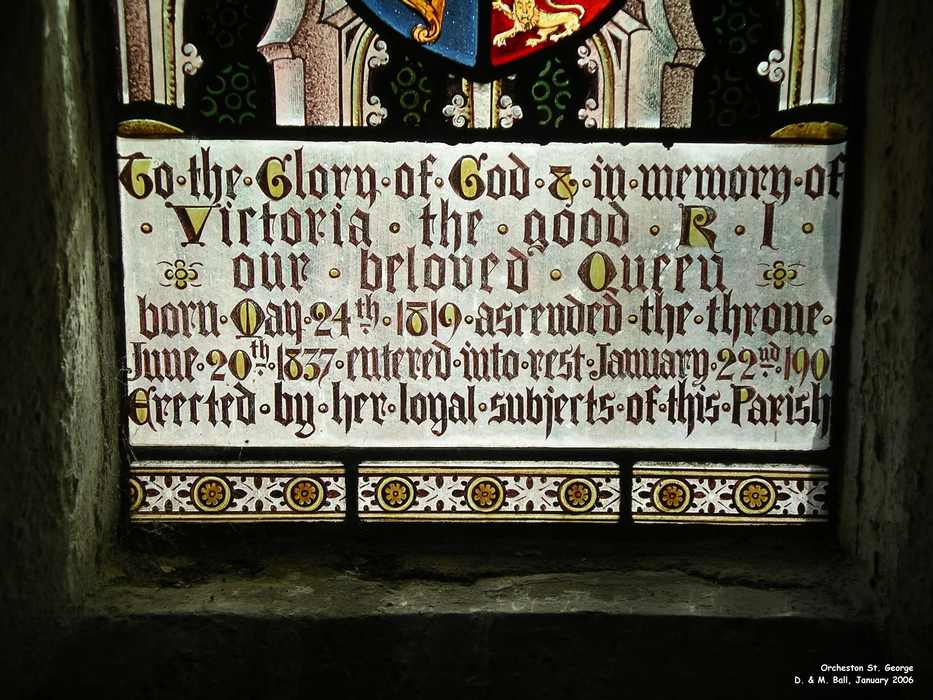 To · the · Glory · of · God · & · in · memory · of
· Victoria · the good · R · I ·
our · beloved · Queen
born · May · 24th · 1819 · ascended · the · throne ·
June · 20th · 1837 · entered · into · rest · January · 22nd · 190
Erected · by · her · loyal · subjects · of · this · Parish
Orcheston St. George
D. & M. Ball, January 2006